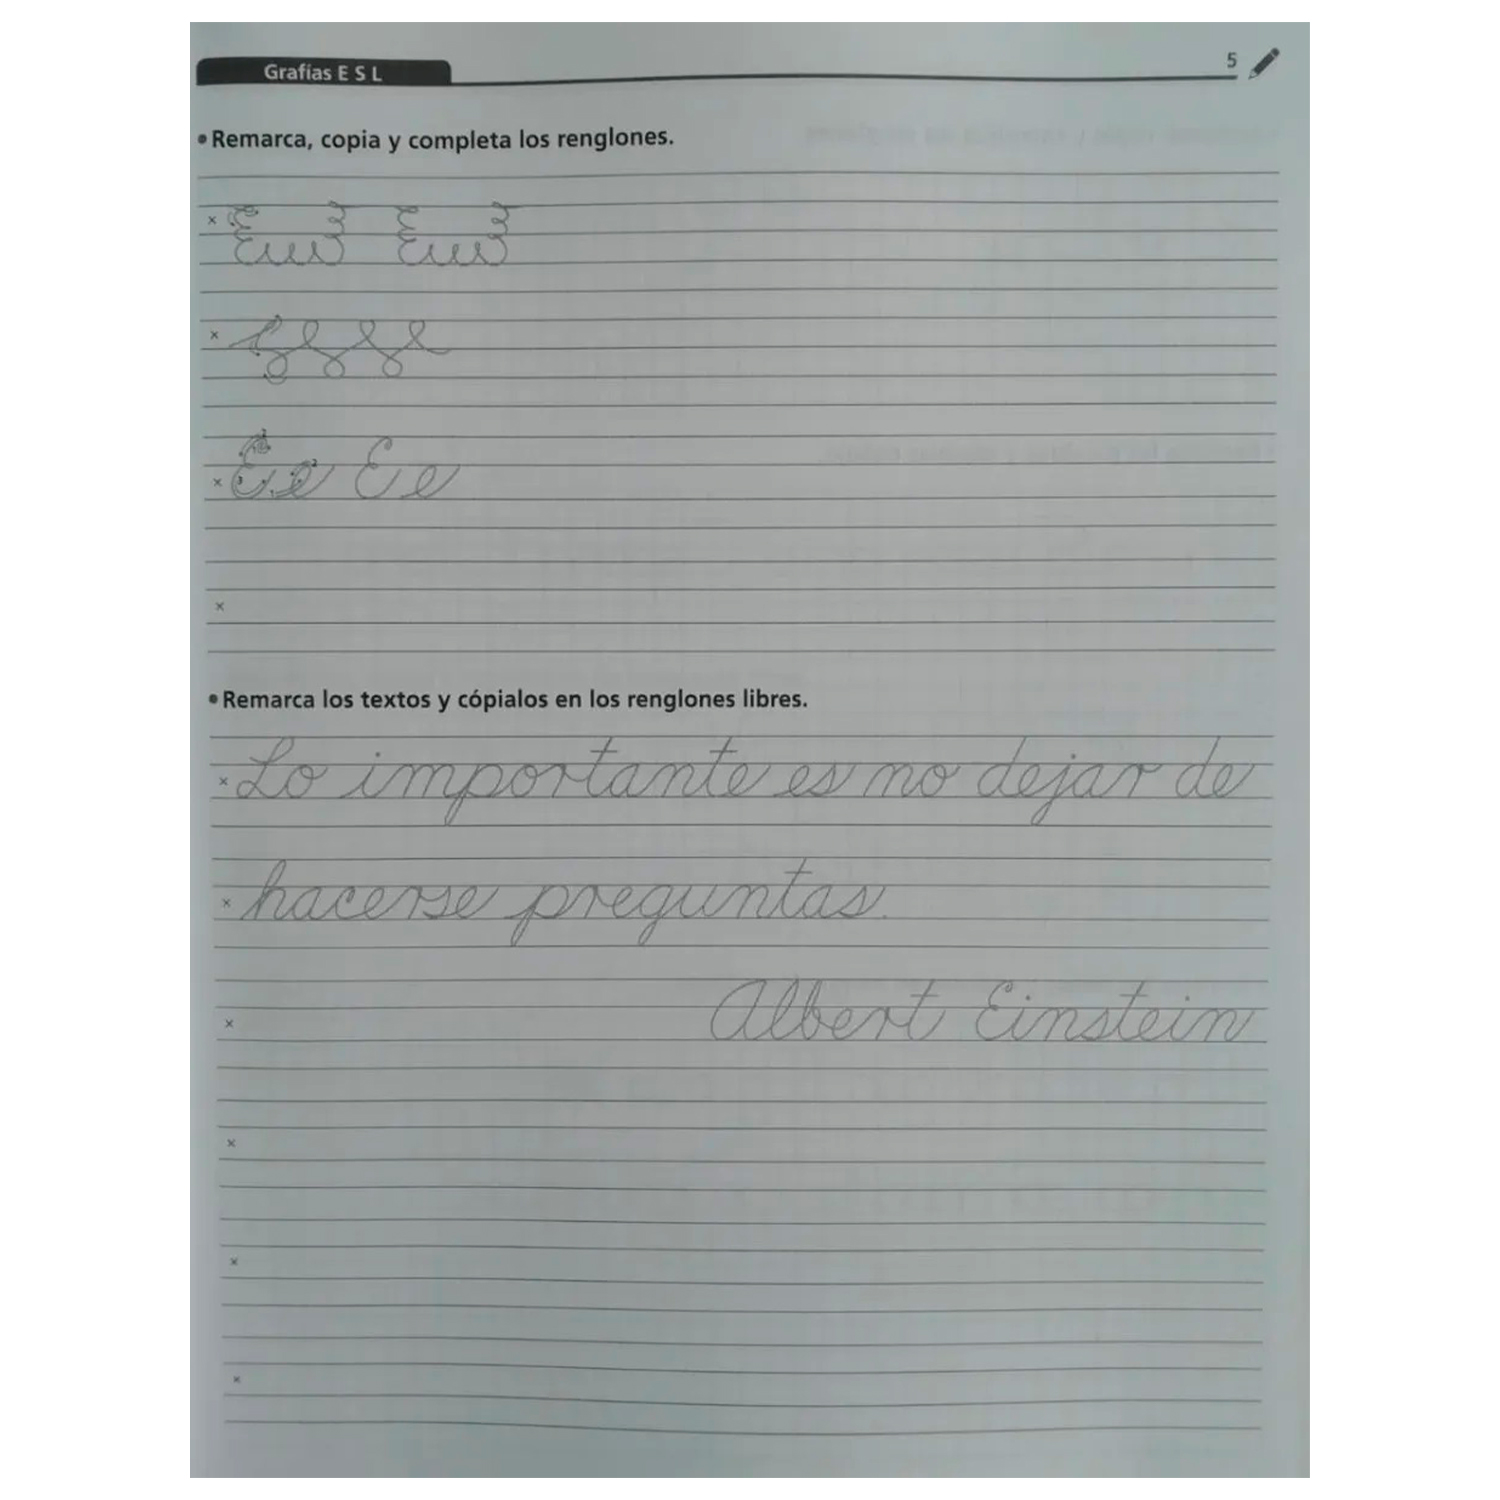 Grafías E S L
5
• Remarca, copia y completa los renglones.
E e E e
• Remarca los textos y cópialos en los renglones libres.
Lo importante es no dejar de
hacerse preguntas.
Albert Einstein